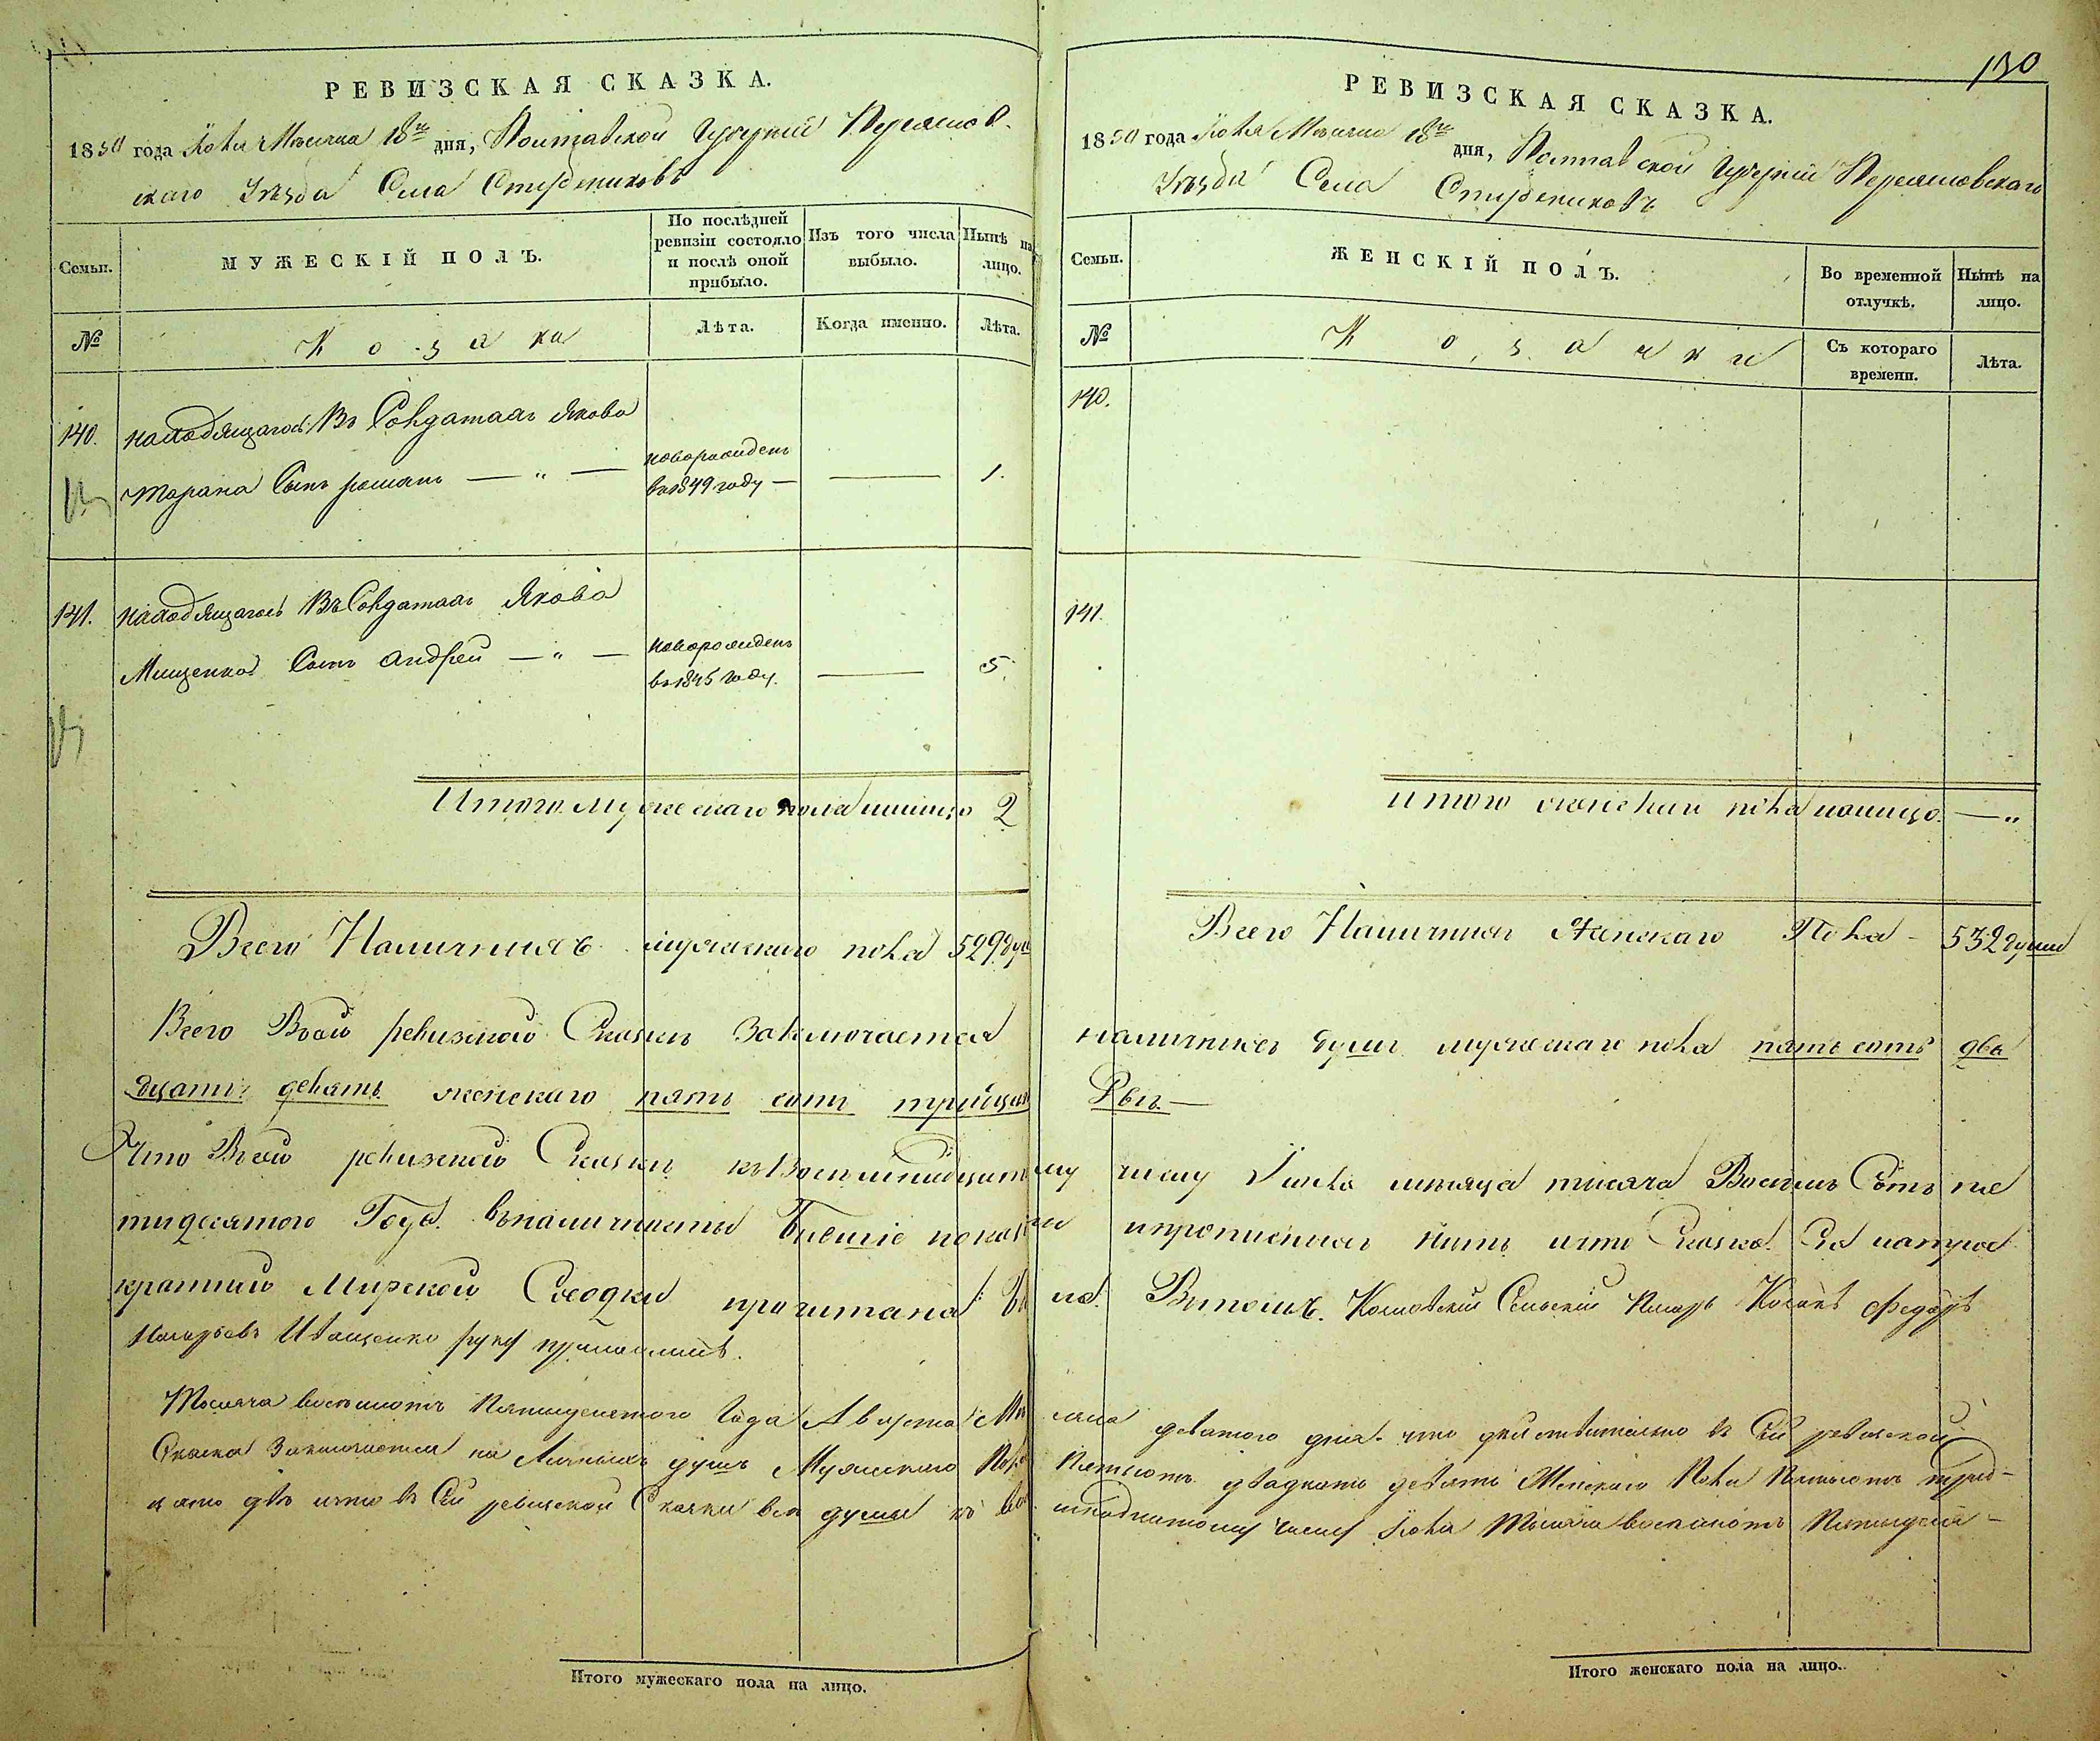 130
РЕВИЗСКАЯ СКАЗКА.
1850 года Іюля Месяца 18го дня, Полтавской Губерніи Переяслов-
скаго Уезда Села Студениковъ
Семьи.
МУЖЕСКІЙ ПОЛЪ.
По послѣдней ревизіи состояло и послѣ оной прибыло.
Изъ того числа выбыло.
Нынѣ на лицо.
№
Козаки
Лѣта.
Когда именно.
Лѣта.
140. находящагося Въ Солдатахъ Якова
Тарана Сынъ романъ — „ — новорожденъ в 1849 году — — 1.
141. находящагось Въ Солдатахъ Якова
Мищенка Сынъ андрей — „ — новорожденъ в 1845 году. — 5.
Итого мужескаго пола налицо 2
Всего Наличныхъ мужескаго пола 529 душ
РЕВИЗСКАЯ СКАЗКА.
1850 года Іюля Месяца 18го дня, Полтавской Губерніи Переясловскаго
Уезда Села Студениковъ
Семьи.
ЖЕНСКІЙ ПОЛЪ.
Во временной отлучкѣ.
Нынѣ на лицо.
№
Козачки
Съ котораго времени.
Лѣта.
140.
141.
итого женскаго пола налицо. — „
Всего Наличныхъ Женскаго Пола - 532 души
Всего Всей ревизской Сказкѣ Заключается наличныхъ душъ мужескаго пола пять сотъ два
дцать девять женскаго пять сотъ тридцать Двѣ —
Что Всей ревизской Сказкѣ къ Восемнадцатому числу Іюля месяца тисяча Восемъ Сотъ пя
тидесятого Года въналичности бившіе показани ипрописанихъ нитъ ичто Сказка Сія натрох
кратній Мирской Сходки прочитана била Вътомъ. Сельскій Писарь Козакъ Федоръ
Иващенко руку приложилъ.
Тысяча восемьсотъ Пятьдесятого Года Августа Месяца девятого дня что действительно в Сей ревизской
Сказки Заключается на Личныхъ душъ Мужескаго Пола Пятьсотъ двадцать девять Женскаго Пола Пятьсотъ трид-
цать две ичто в Сей ревизской Сказки все души къ восемнадцатому числу Іюля Тысяча восемьсотъ Пятьдеся-
Итого мужескаго пола на лицо.
Итого женскаго пола на лицо.